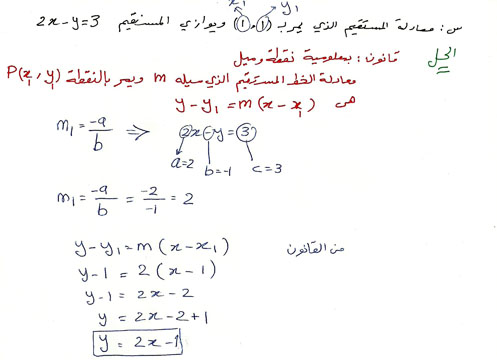 x₁ y₁
س: معادلة المستقيم الذي يمر ب (1,1) ويوازي المستقيم 2x-y=3
الحل
قانون: بمعلومية نقطة وميل
معادلة الخط المستقيم الذي ميله m ويمر بالنقطة P(x₁, y₁)
هي y-y₁=m(x-x₁)
m₁=-a/b ⇒ 2x-y=3
a=2 b=-1 c=3
m₁=-a/b=-2/-1=2
من القانون
y-y₁=m(x-x₁)
y-1=2(x-1)
y-1=2x-2
y=2x-2+1
y=2x-1